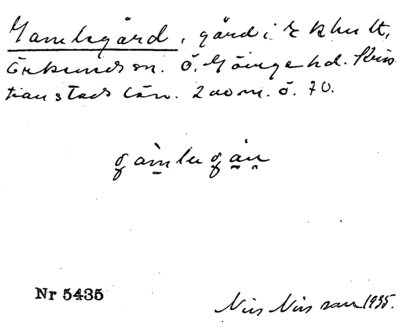 Gamlegård, gård i Ekhult,
Örkened sn. Ö. Göinge hd. Kris
tianstads län. 200 m. ö. 70.
Nr 5435
Nils Nilsson 1935.